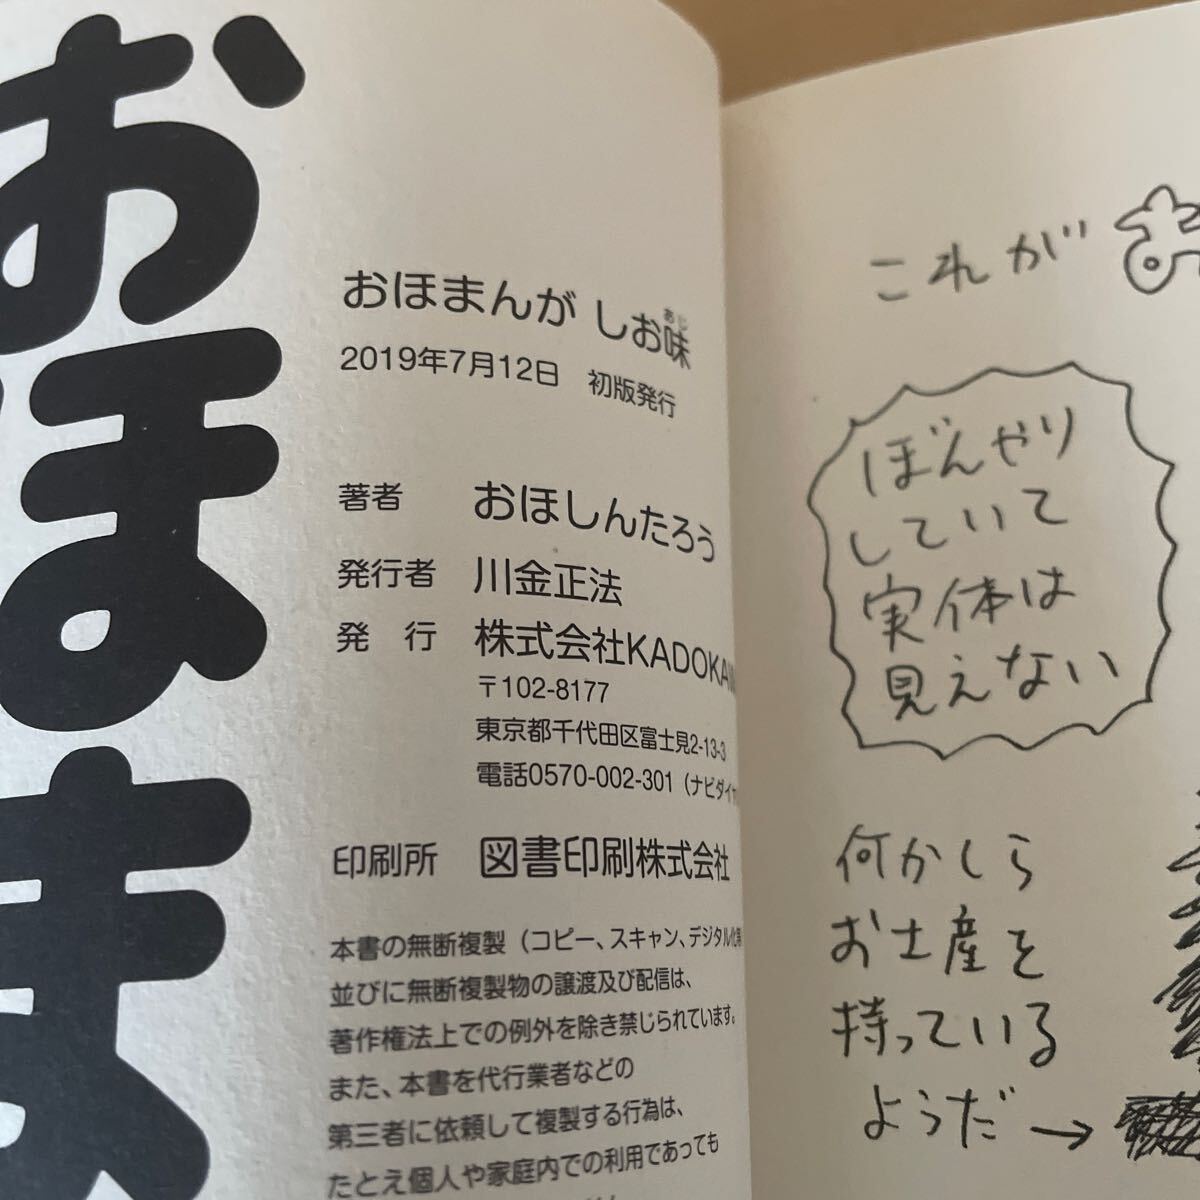 おほま
おほまんが しお味
あじ
2019年7月12日 初版発行
著者 おほしんたろう
発行者 川金正法
発 行 株式会社KADOKAW
〒102-8177
東京都千代田区富士見2-13-3
電話0570-002-301(ナビダイヤ
印刷所 図書印刷株式会社
本書の無断複製(コピー、スキャン、デジタル化等
並びに無断複製物の譲渡及び配信は、
著作権法上での例外を除き禁じられています。
また、本書を代行業者などの
第三者に依頼して複製する行為は、
たとえ個人や家庭内での利用であっても
これが お
ぼんやり
していて
実体は
見えない
何かしら
お土産を
持っている
ようだ→